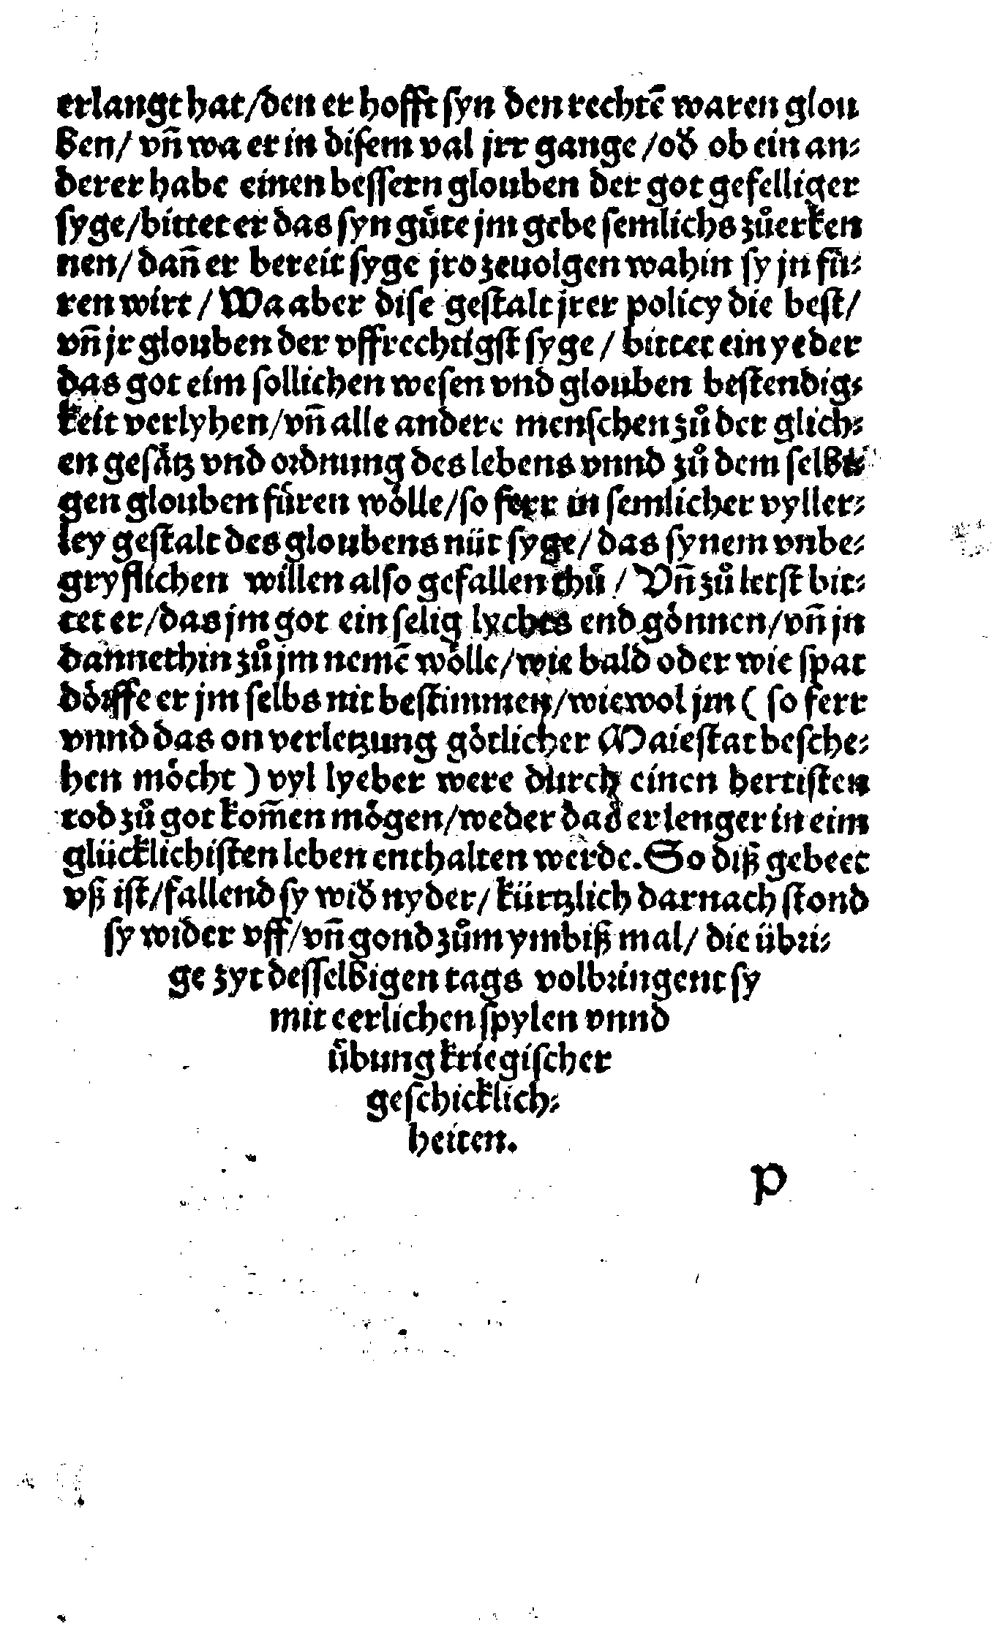 erlangt hat/den er hofft syn den rechtē waren glou
ben/ vn̄ wa er in disem val jrr gange /od̕ ob ein an⸗
derer habe einen bessern glouben der got gefelliger
syge/bittet er das syn guͤte jm gebe semlichs zuͦerken
nen/ dan̄ er bereit syge jro zeuolgen wahin sy jn fuͤ⸗
ren wirt / Wa aber dise gestalt jrer policy die best/
vn̄ jr glouben der vffrechtigst syge / bittet ein yeder
das got eim sollichen wesen vnd glouben bestendig⸗
keit verlyhen/vn̄ alle andere menschen zuͦ der glich⸗
en gesaͤtz vnd ordnung des lebens vnnd zuͦ dem selbi
gen glouben fuͤren woͤlle/so ferr in semlicher vyller⸗
ley gestalt des gloubens nüt syge/ das synem vnbe⸗
gryflichen willen also gefallen thuͤ / Vn̄ zuͦ letst bit⸗
tet er/das jm got ein selig lyches end goͤnnen/vn̄ jn
dannethin zuͦ jm nemē woͤlle/wie bald oder wie spat
doͤrffe er jm selbs nit bestimmen/wiewol jm ( so ferr
vnnd das on verletzung goͤtlicher Maiestat besche⸗
hen moͤcht ) vyl lyeber were durch einen hertisten
tod zuͦ got kom̄en moͤgen/weder das er lenger in eim
glücklichisten leben enthalten werde. So diß gebeet
vß ist/fallend sy wid̕ nyder/ kürtzlich darnach stond
sy wider vff/vn̄ gond zuͦm ymbiß mal/ die übri⸗
ge zyt desselbigen tags volbringent sy
mit eerlichen spylen vnnd
uͤbung kriegischer
geschicklich⸗
heiten.
p